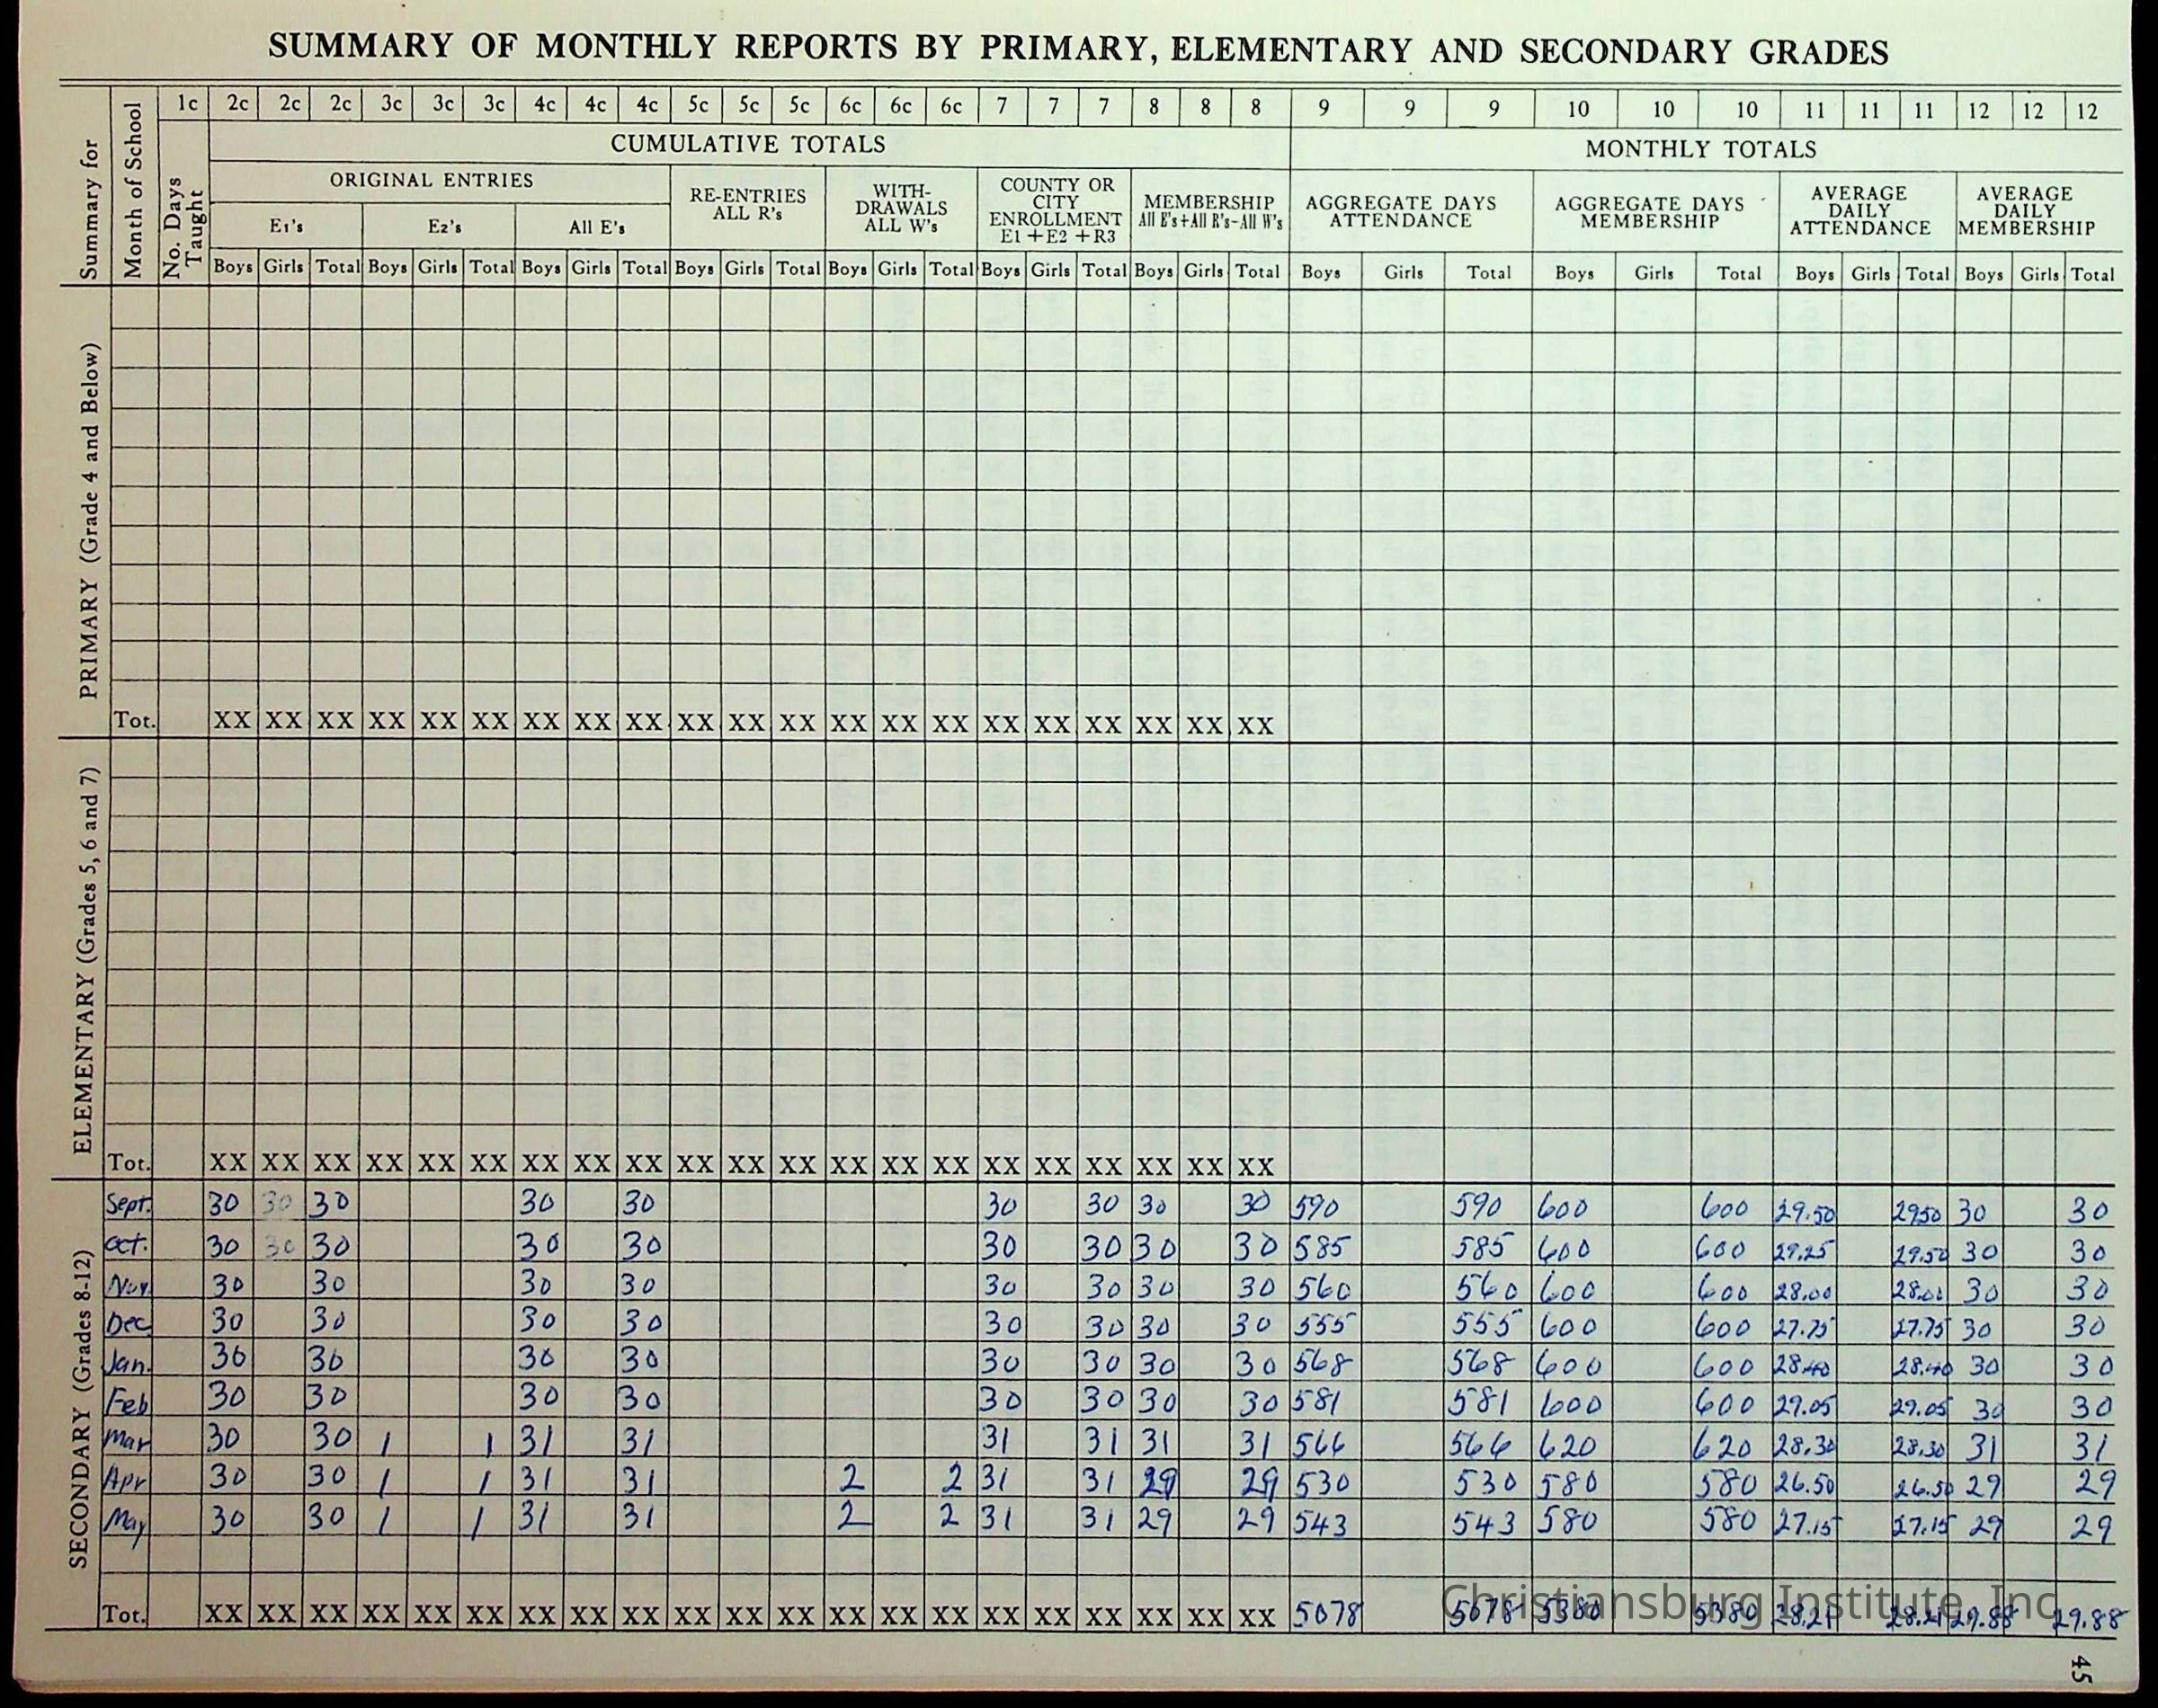 SUMMARY OF MONTHLY REPORTS BY PRIMARY, ELEMENTARY AND SECONDARY GRADES
Summary for
Month of School
1c 2c 2c 2c 3c 3c 3c 4c 4c 4c 5c 5c 5c 6c 6c 6c 7 7 7 8 8 8 9 9 9 10 10 10 11 11 11 12 12 12
No. Days Taught
CUMULATIVE TOTALS MONTHLY TOTALS
ORIGINAL ENTRIES
E1's E2's All E's
RE-ENTRIES
ALL R's
WITH-
DRAWALS
ALL W's
COUNTY OR
CITY
ENROLLMENT
E1 + E2 + R3
MEMBERSHIP
All E's+All R's-All W's
AGGREGATE DAYS
ATTENDANCE
AGGREGATE DAYS
MEMBERSHIP
AVERAGE
DAILY
ATTENDANCE
AVERAGE
DAILY
MEMBERSHIP
Boys Girls Total Boys Girls Total Boys Girls Total Boys Girls Total Boys Girls Total Boys Girls Total Boys Girls Total Boys Girls Total Boys Girls Total Boys Girls Total Boys Girls Total
PRIMARY (Grade 4 and Below)
Tot. XX XX XX XX XX XX XX XX XX XX XX XX XX XX XX XX XX XX XX XX XX
ELEMENTARY (Grades 5, 6 and 7)
Tot. XX XX XX XX XX XX XX XX XX XX XX XX XX XX XX XX XX XX XX XX XX
SECONDARY (Grades 8-12)
Sept. 30 30 30 30 30 30 30 30 30 590 590 600 600 29.50 29.50 30 30
Oct. 30 30 30 30 30 30 30 30 30 585 585 600 600 29.25 29.50 30 30
Nov. 30 30 30 30 30 30 30 30 560 560 600 600 28.00 28.00 30 30
Dec. 30 30 30 30 30 30 30 30 555 555 600 600 27.75 27.75 30 30
Jan. 30 30 30 30 30 30 30 30 568 568 600 600 28.40 28.40 30 30
Feb 30 30 30 30 30 30 30 30 581 581 600 600 29.05 29.05 30 30
Mar 30 30 1 1 31 31 31 31 31 31 566 566 620 620 28.30 28.30 31 31
Apr 30 30 1 1 31 31 2 2 31 31 29 29 530 530 580 580 26.50 26.50 29 29
May 30 30 1 1 31 31 2 2 31 31 29 29 543 543 580 580 27.15 27.15 29 29
Tot. XX XX XX XX XX XX XX XX XX XX XX XX XX XX XX XX XX XX XX XX XX 5078 5078 5380 5380 28.21 28.21 29.88 29.88
Christiansburg Institute, Inc
45